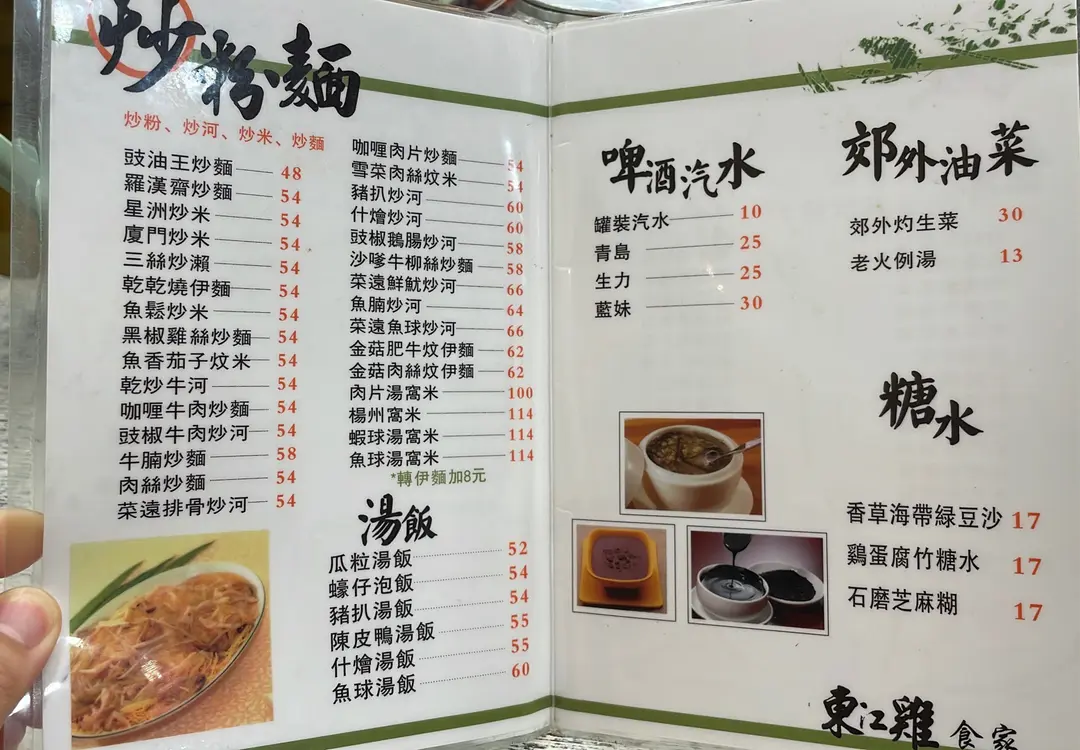 炒粉麵
炒粉、炒河、炒米、炒麵
豉油王炒麵 48
羅漢齋炒麵 54
星洲炒米 54
廈門炒米 54
三絲炒瀨 54
乾乾燒伊麵 54
魚鬆炒米 54
黑椒雞絲炒麵 54
魚香茄子炆米 54
乾炒牛河 54
咖喱牛肉炒麵 54
豉椒牛肉炒河 54
牛腩炒麵 58
肉絲炒麵 54
菜遠排骨炒河 54
咖喱肉片炒麵 54
雪菜肉絲炆米 54
豬扒炒河 60
什燴炒河 60
豉椒鵝腸炒河 58
沙嗲牛柳絲炒麵 58
菜遠鮮魷炒河 66
魚腩炒河 64
菜遠魚球炒河 66
金菇肥牛炆伊麵 62
金菇肉絲炆伊麵 62
肉片湯窩米 100
楊州窩米 114
蝦球湯窩米 114
魚球湯窩米 114
*轉伊麵加8元
湯飯
瓜粒湯飯 52
蠔仔泡飯 54
豬扒湯飯 54
陳皮鴨湯飯 55
什燴湯飯 55
魚球湯飯 60
啤酒汽水
罐裝汽水 10
青島 25
生力 25
藍妹 30
郊外油菜
郊外灼生菜 30
老火例湯 13
糖水
香草海帶緑豆沙 17
鷄蛋腐竹糖水 17
石磨芝麻糊 17
東江雞 食家